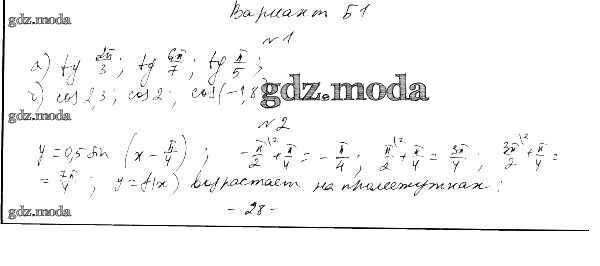 Вариант Б1
gdz.moda
№1
а) tg 2π/3; tg 6π/7; tg π/5;
б) cos 2,3; cos 2; cos(-1,8)
gdz.moda
gdz.moda
№2
y = 0,5 sin (x - π/4); -π/2 + π/4 = -π/4; π/2 + π/4 = 3π/4; 3π/2 + π/4 =
= 7π/4; y = f(x) возрастает на промежутках:
gdz.moda
- 28 -